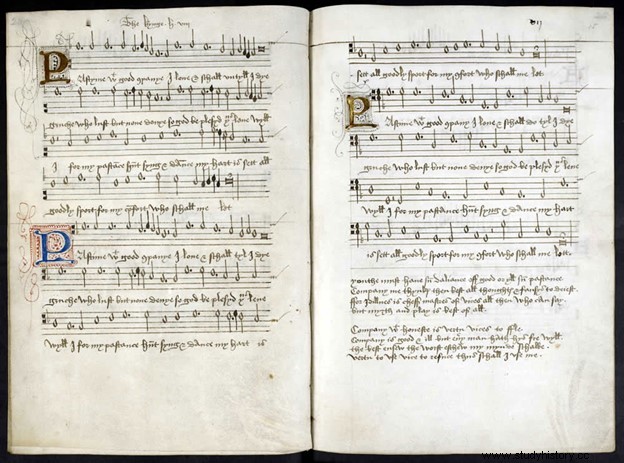 The kynge h viii
Pastyme wt good companye I love & schall untyll I dye
gruche who lust but none denye so god be plesyd thus leve wyll
I for my pastance hunt syng & dance my hart is sett all
goodly sport for my comfort who schall me let
Pastyme wt good companye I love & schall tyl I dye
gruche who lust but none denye so god be plesyd yus leve
wyll I for my pastance hunt syng & dance my hart is
sett all goodly sport for my comfort who schall me let
Pastime wt good companye I love & schall do tyl I dye
gruche who lust but none denye so god be plesyd yus leve
wyll I for my pastance hunt syng & dance my hart
is sett all goodly sport for my comfort who schall me lett
youthe must have sum daliance off good or yll sum pastance
Company me thynkes then best all thoughts & fansys to deiest.
ffor Idillnes is cheff mastres of vices all then who can say.
but myrth and play is best of all.
Company wt honeste is vertu vices to ffle.
Company is good & ill but every man hath hys fre wyll.
the best ensew the worst eschew my mynde schalbe.
vertu to use vice to refuce thus schall I use me.
www.studyhistory.cc